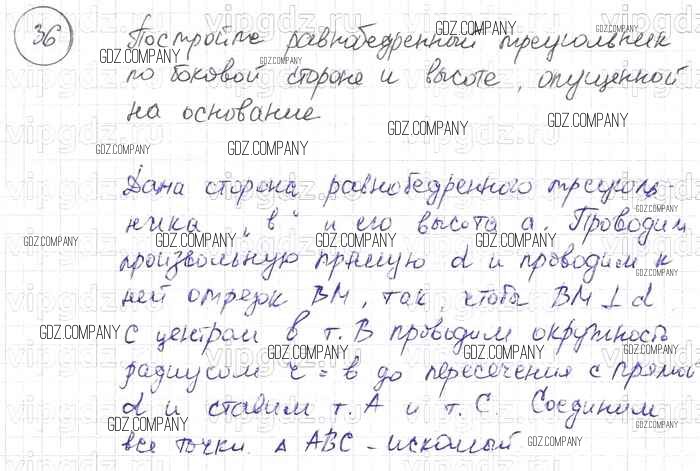 36
Постройте равнобедренный треугольник
по боковой стороне и высоте, опущенной
на основание
Дана сторона равнобедренного треуголь-
ника „в" и его высота а. Проводим
произвольную прямую d и проводим к
ней отрезок ВМ, так, чтобы ВМ ⊥ d.
С центром в т. В проводим окружность
радиусом r = в до пересечения с прямой
d и ставим т. А и т. С. Соединим
все точки. △ АВС - искомый